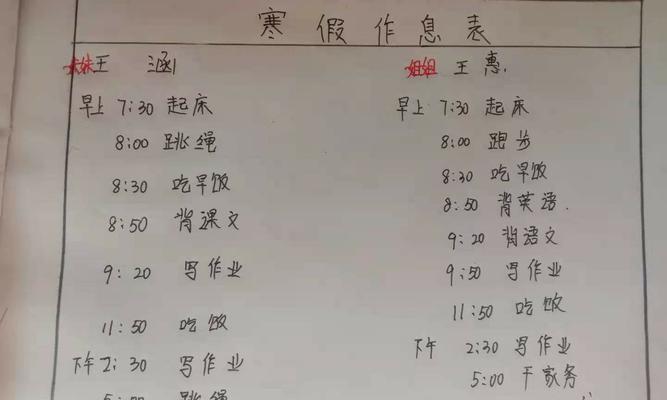 寒假作息表
妹妹王 涵
早上 7:30 起床
8:00 跳绳
8:30 吃早饭
8:50 背课文
9:20 写作业
11:50 吃饭
下午2:30 写作业
5:00 跳绳
姐姐 王惠
早上 7:30 起床
8:00 跑步
8:30 吃早饭
8:50 背英语.
9:20 背语文
9:50 写作业
11:50 吃饭
下午 2:30 写作业
5:00 干家务